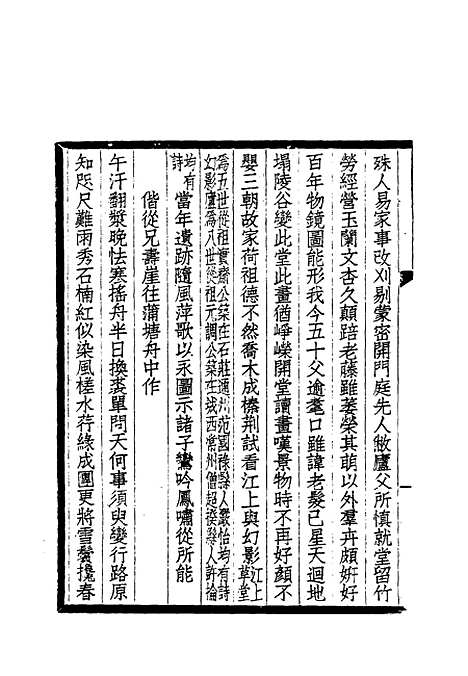 殊人易家事改刈剔蒙密開門庭先人敝廬父所慎就堂留竹
勞經營玉蘭文杏久顛踣老藤雖萎榮其萌以外羣卉頗姸好
百年物鏡圖能形我今五十父逾耄口雖諱老髮已星天迴地
塌陵谷變此堂此畫猶崢嶸開堂讀畫嘆景物時不再好顏不
嬰三朝故家荷祖德不然喬木成榛荆試看江上與幻影江上草堂
爲五世從祖實齋公築在石莊通州范園祿縣人嚴怡均有詩
幻影廬爲八世從祖元調公築在城西常州僧超揆縣人許掄
均有詩當年遺跡隨風萍歌以永圖示諸子鸞吟鳳嘯從所能
偕從兄壽崖往蒲塘舟中作
午汗翻漿晚怯寒搖舟半日換裘單問天何事須臾變行路原
知咫尺難雨秀石楠紅似染風槎水荇綠成團更將雪鬢攙春